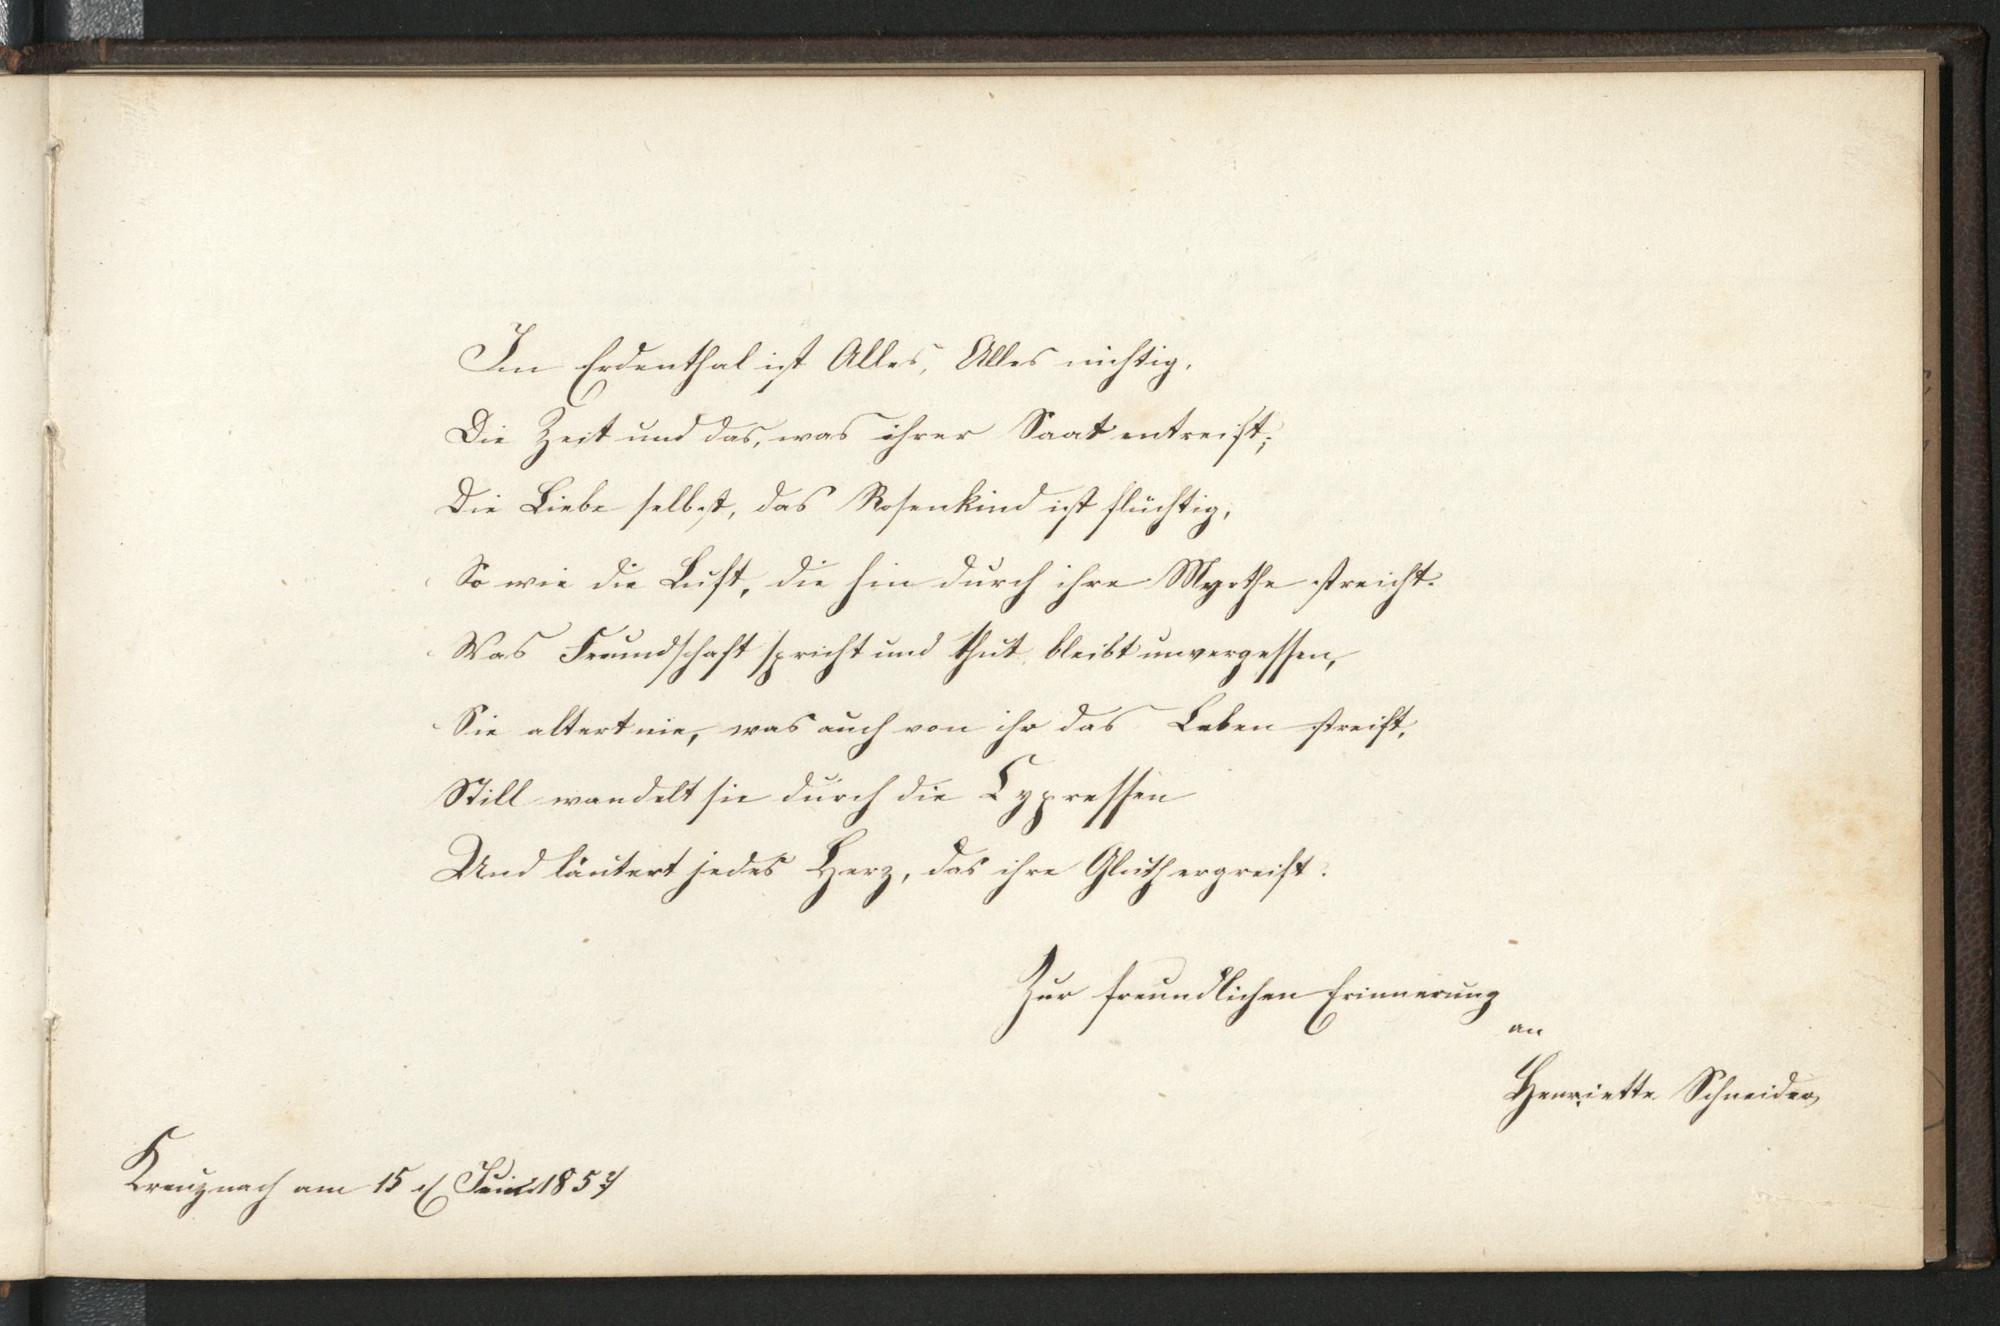 Im Erdenthal ist Alles, Alles nichtig,
Die Zeit und das, was ihrer Saat entreift;
Die Liebe selbst, das Rosenkind ist flüchtig,
So wie die Luft, die hin durch ihre Myrthe streicht.
Was Freundschaft spricht und thut bleibt unvergessen,
Sie altert nie, was auch von ihr das Leben streift,
Still wandelt sie durch die Cypressen
Und läutert jedes Herz, das ihre Gluth ergreift.
Zur freundlichen Erinnerung
an
Henriette Schneider,
Kreuznach am 15